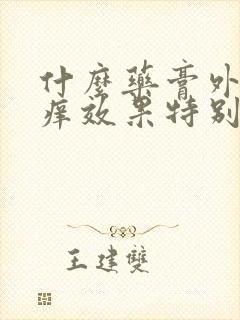 什麼藥膏外
痒效果特別
王建雙